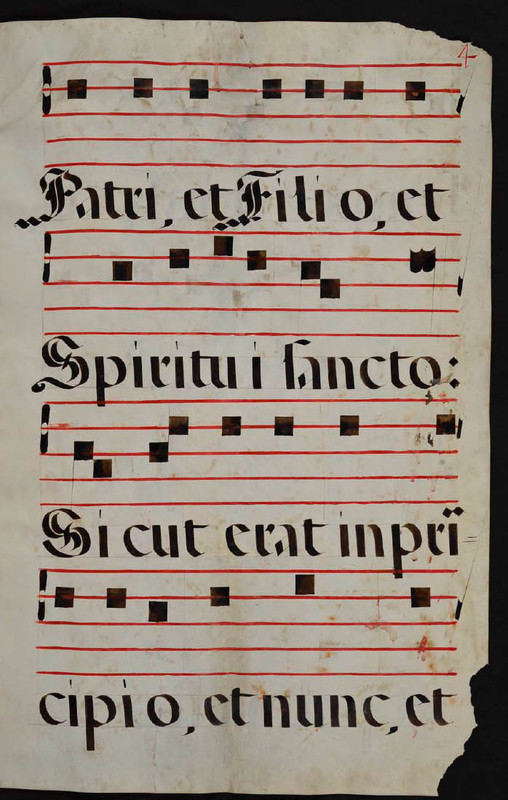 4
Patri, et Filio, et
Spiritui sancto:
Sicut erat in pri=
cipio, et nunc, et